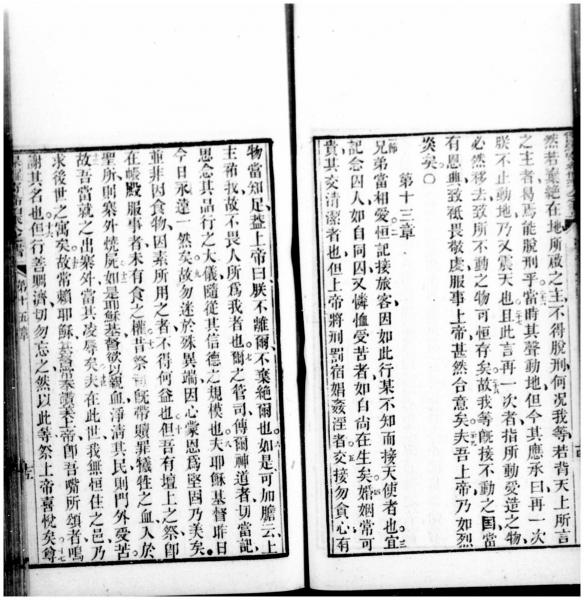 然若棄絕在地所啟之主不得脫刑何況我等若背天上所言
之主者曷焉能脫刑乎當時其聲動地但今其應承曰再一次
朕不止動地乃又震天也且此言再一次者指所動受造之物
必然移去致所不動之物可恒存矣故我等既接不動之國當
有恩典致祗畏敬虔服事上帝甚然合意矣夫吾上帝乃如烈
炎矣
第十三章
兄弟當相愛恒記接旅客因如此行某不知而接天使者也宜
記念囚人如自同囚又憐恤受苦者如自尚在生矣婚姻常可
貴其交清潔者也但上帝將刑罰宿娼姦淫者交接勿貪心有
物當知足蓋上帝曰朕不離爾不棄絕爾也如是可加膽云上
主祐我故不畏人所為我者也爾之管司傳爾神道者切當記
思念其品行之大儀隨從其信德之規模也夫耶穌基督昨日
今日永遠一然矣故勿迷於殊異端因心蒙恩為堅固乃美矣
並非因食物因素所用之者不得何益也但吾有壇上之祭即
在帳殿服事者未有食之權昔祭司既帶贖罪犧牲之血入於
聖所則寨外燒屍如是耶穌基督欲以親血淨清其民則門外受苦
故吾當就之出寨外當其凌辱矣夫在此世我無恒住之邑乃
求後世之寓矣故常賴耶穌基督當奉讚美上帝即吾嘴所頌者鳴
謝其名也但行善賙濟切勿忘之然以此等祭上帝喜悅矣尊
第十五章